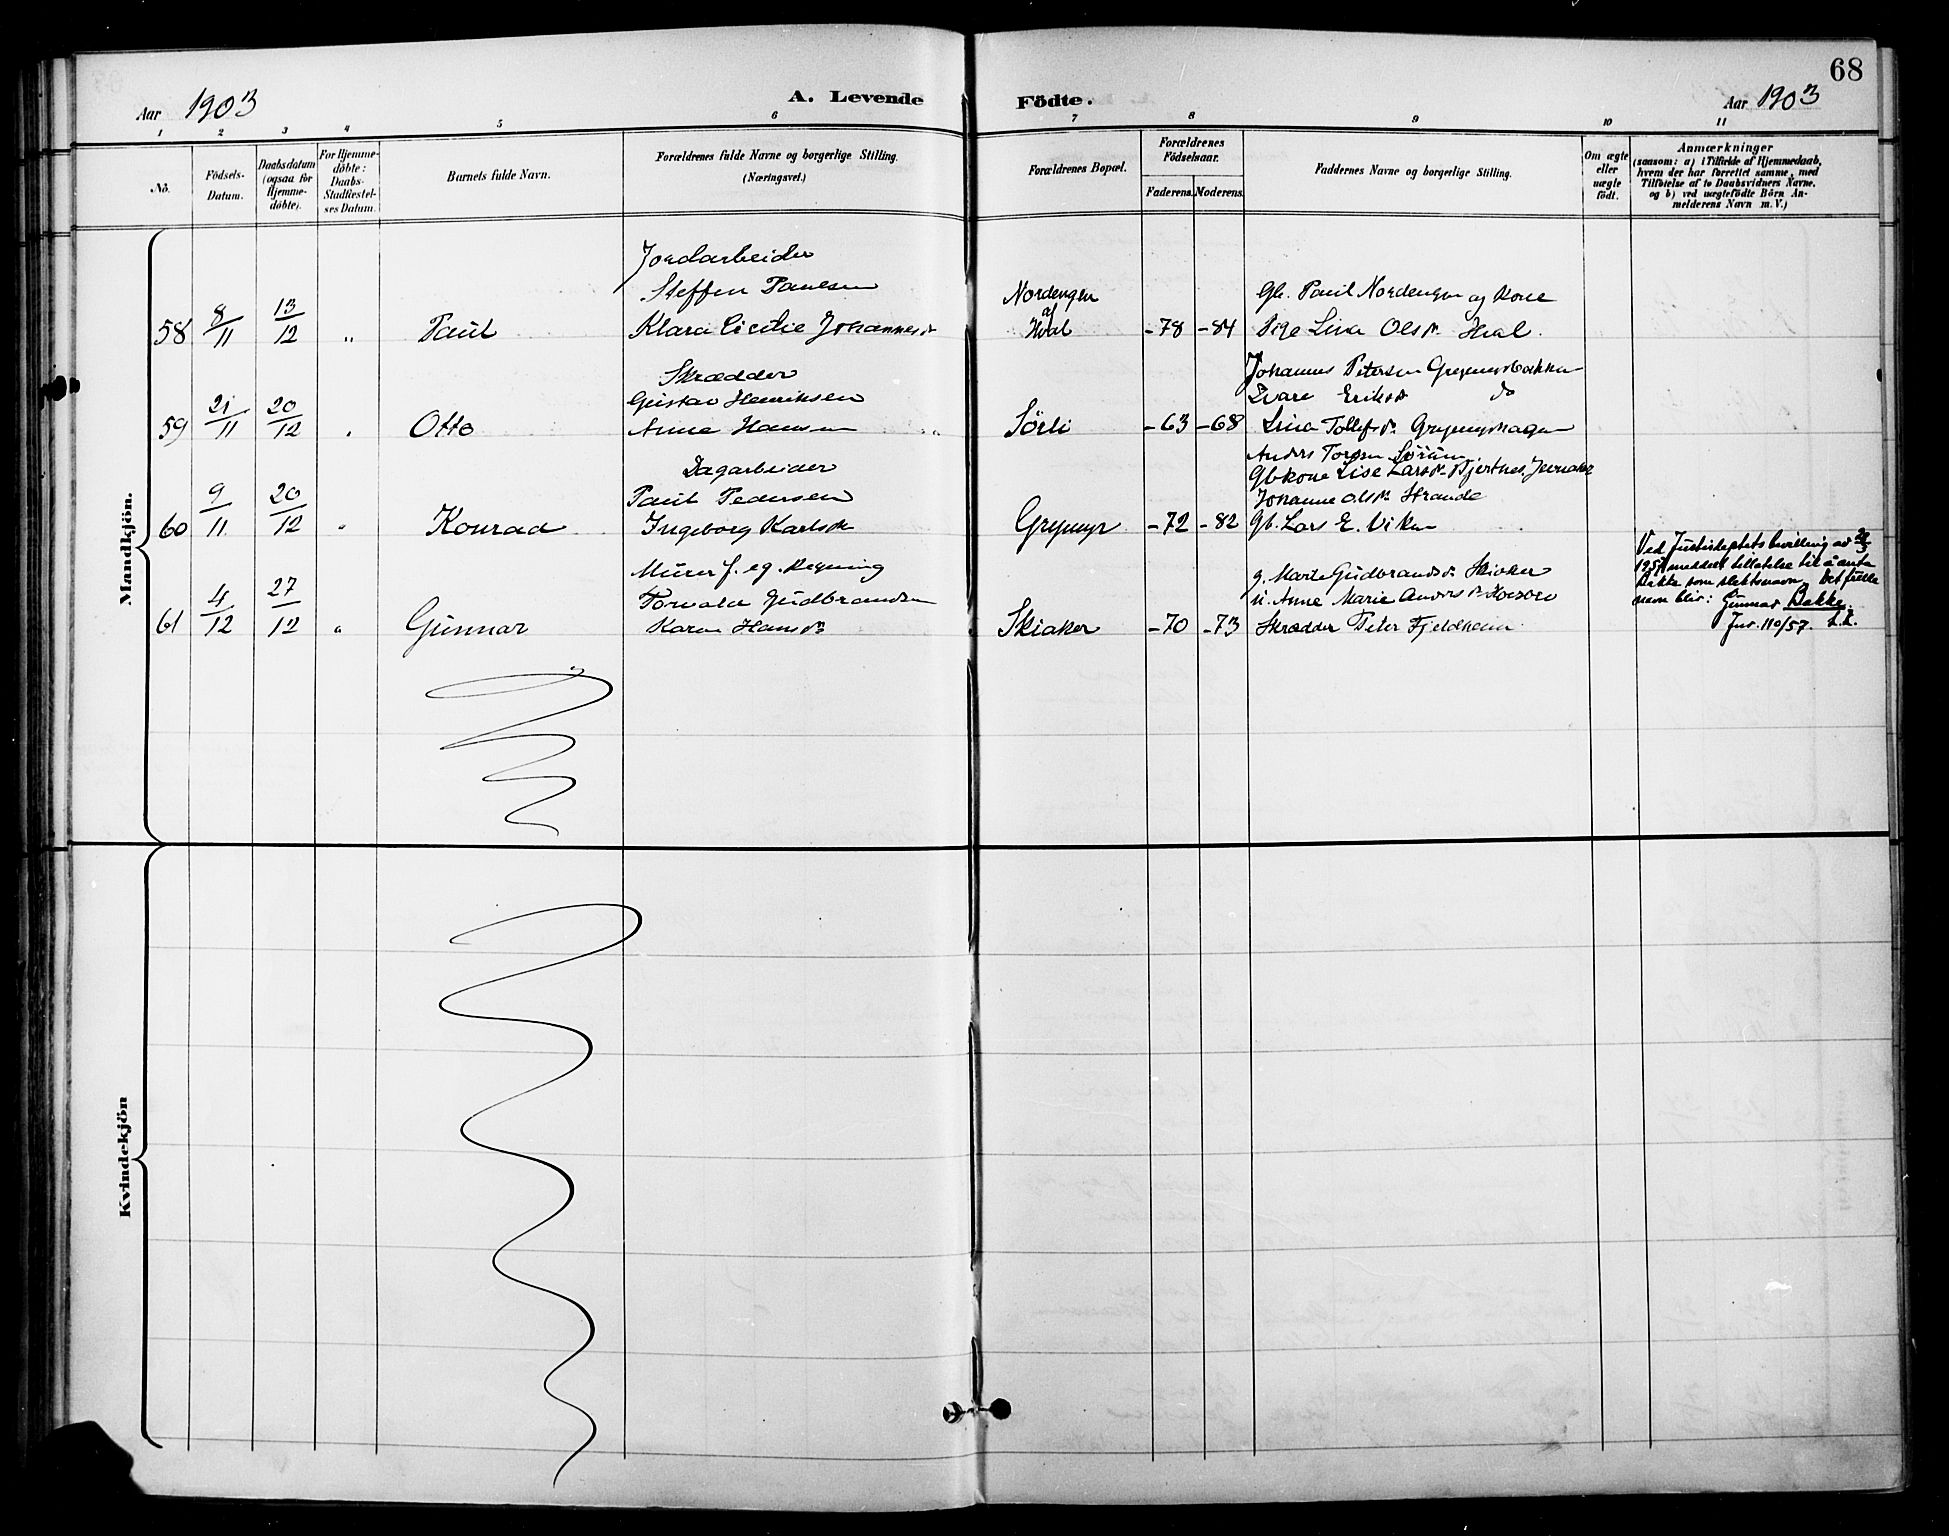 68
Aar 1903
A. Levende Födte.
Aar 1903
1 2 3 4 5 6 7 8 9 10 11
No.
Födsels-Datum.
Daabsdatum (ogsaa for Hjemme-döbte).
For Hjemme-döbte: Daabs-Stadfæstel-ses Datum.
Barnets fulde Navn.
Forældrenes fulde Navne og borgerlige Stilling.
(Næringsvei.)
Forældrenes Bopæl.
Forældrenes Födselsaar.
Faderens. Moderens.
Faddernes Navne og borgerlige Stilling.
Om ægte eller uægte født.
Anmærkninger
(saasom: a) i Tilfælde af Hjemmedaab,
hvem der har forrettet samme, med
Tilföielse af to Daabsvidners Navne,
og b) ved uægtefödte Börn An-
melderens Navn m. V.)
Mandkjön.
Jordarbeider
Steffen Paulsen
Nordengen
Gb. Paul Nordengen og Kone
58 8/11 13/12 " Paul Klara Cicilie Johannesdr af Hval -78 -84 Pige Lina Olsdr Hval.
Skrædder
Johannes Petersen Grymyrbakken
Gustav Henriksen
Eriksdr do
59 21/11 20/12 " Otto Anne Hansen Sørli -63 -68 Lina Tollefsdr Grymyrhagen
Dagarbeider
Anders Torsen Sørum
Gbkone Lise Larsdr Bjertnes, Jevnaker
Paul Pedersen
Johanne Olsdr Strande
60 9/11 20/12 " Konrad Ingeborg Karlsdr Grymyr -72 -82 Gb. Lars E. Viken
Ved Justisdeptets bevilling av
1957 meddelt tillatelse til å anta
Bakke som slektsnavn. Det fulle
navn blir: Gunnar Bakke.
Jnr. 110/57.
Murer f. eg. Regning
g. Marte Gudbrandsdr Skiaker
Torvald Gudbrandsen
u. Anne Marie Andersdr
61 4/12 27/12 " Gunnar Karen Hansdr Skiaker -70 -73 Skrædder Peter Fjeldheim
Kvindekjön